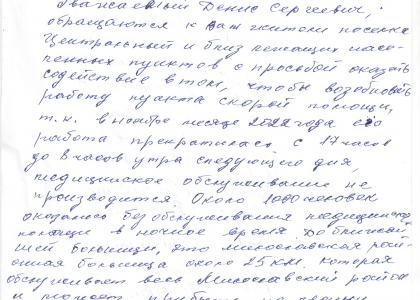 Уважаемый Денис Сергеевич,
обращаются к Вам жители поселка
Центральный и близ лежащих насе-
ленных пунктов с просьбой оказать
содействие в том, чтобы возобновить
работу пункта скорой помощи,
т.к. в ноябре месяце 2022 года его
работа прекратилась с 17 часов
до 8 часов утра следующего дня,
медицинское обслуживание не
производится. Около 1000 человек
оказалось без обслуживания медицинской
помощи в ночное время. До ближай-
шей больницы, это Милославская рай-
онная больница около 25 км. которая
обслуживает весь Милославский район
и может прибыть на